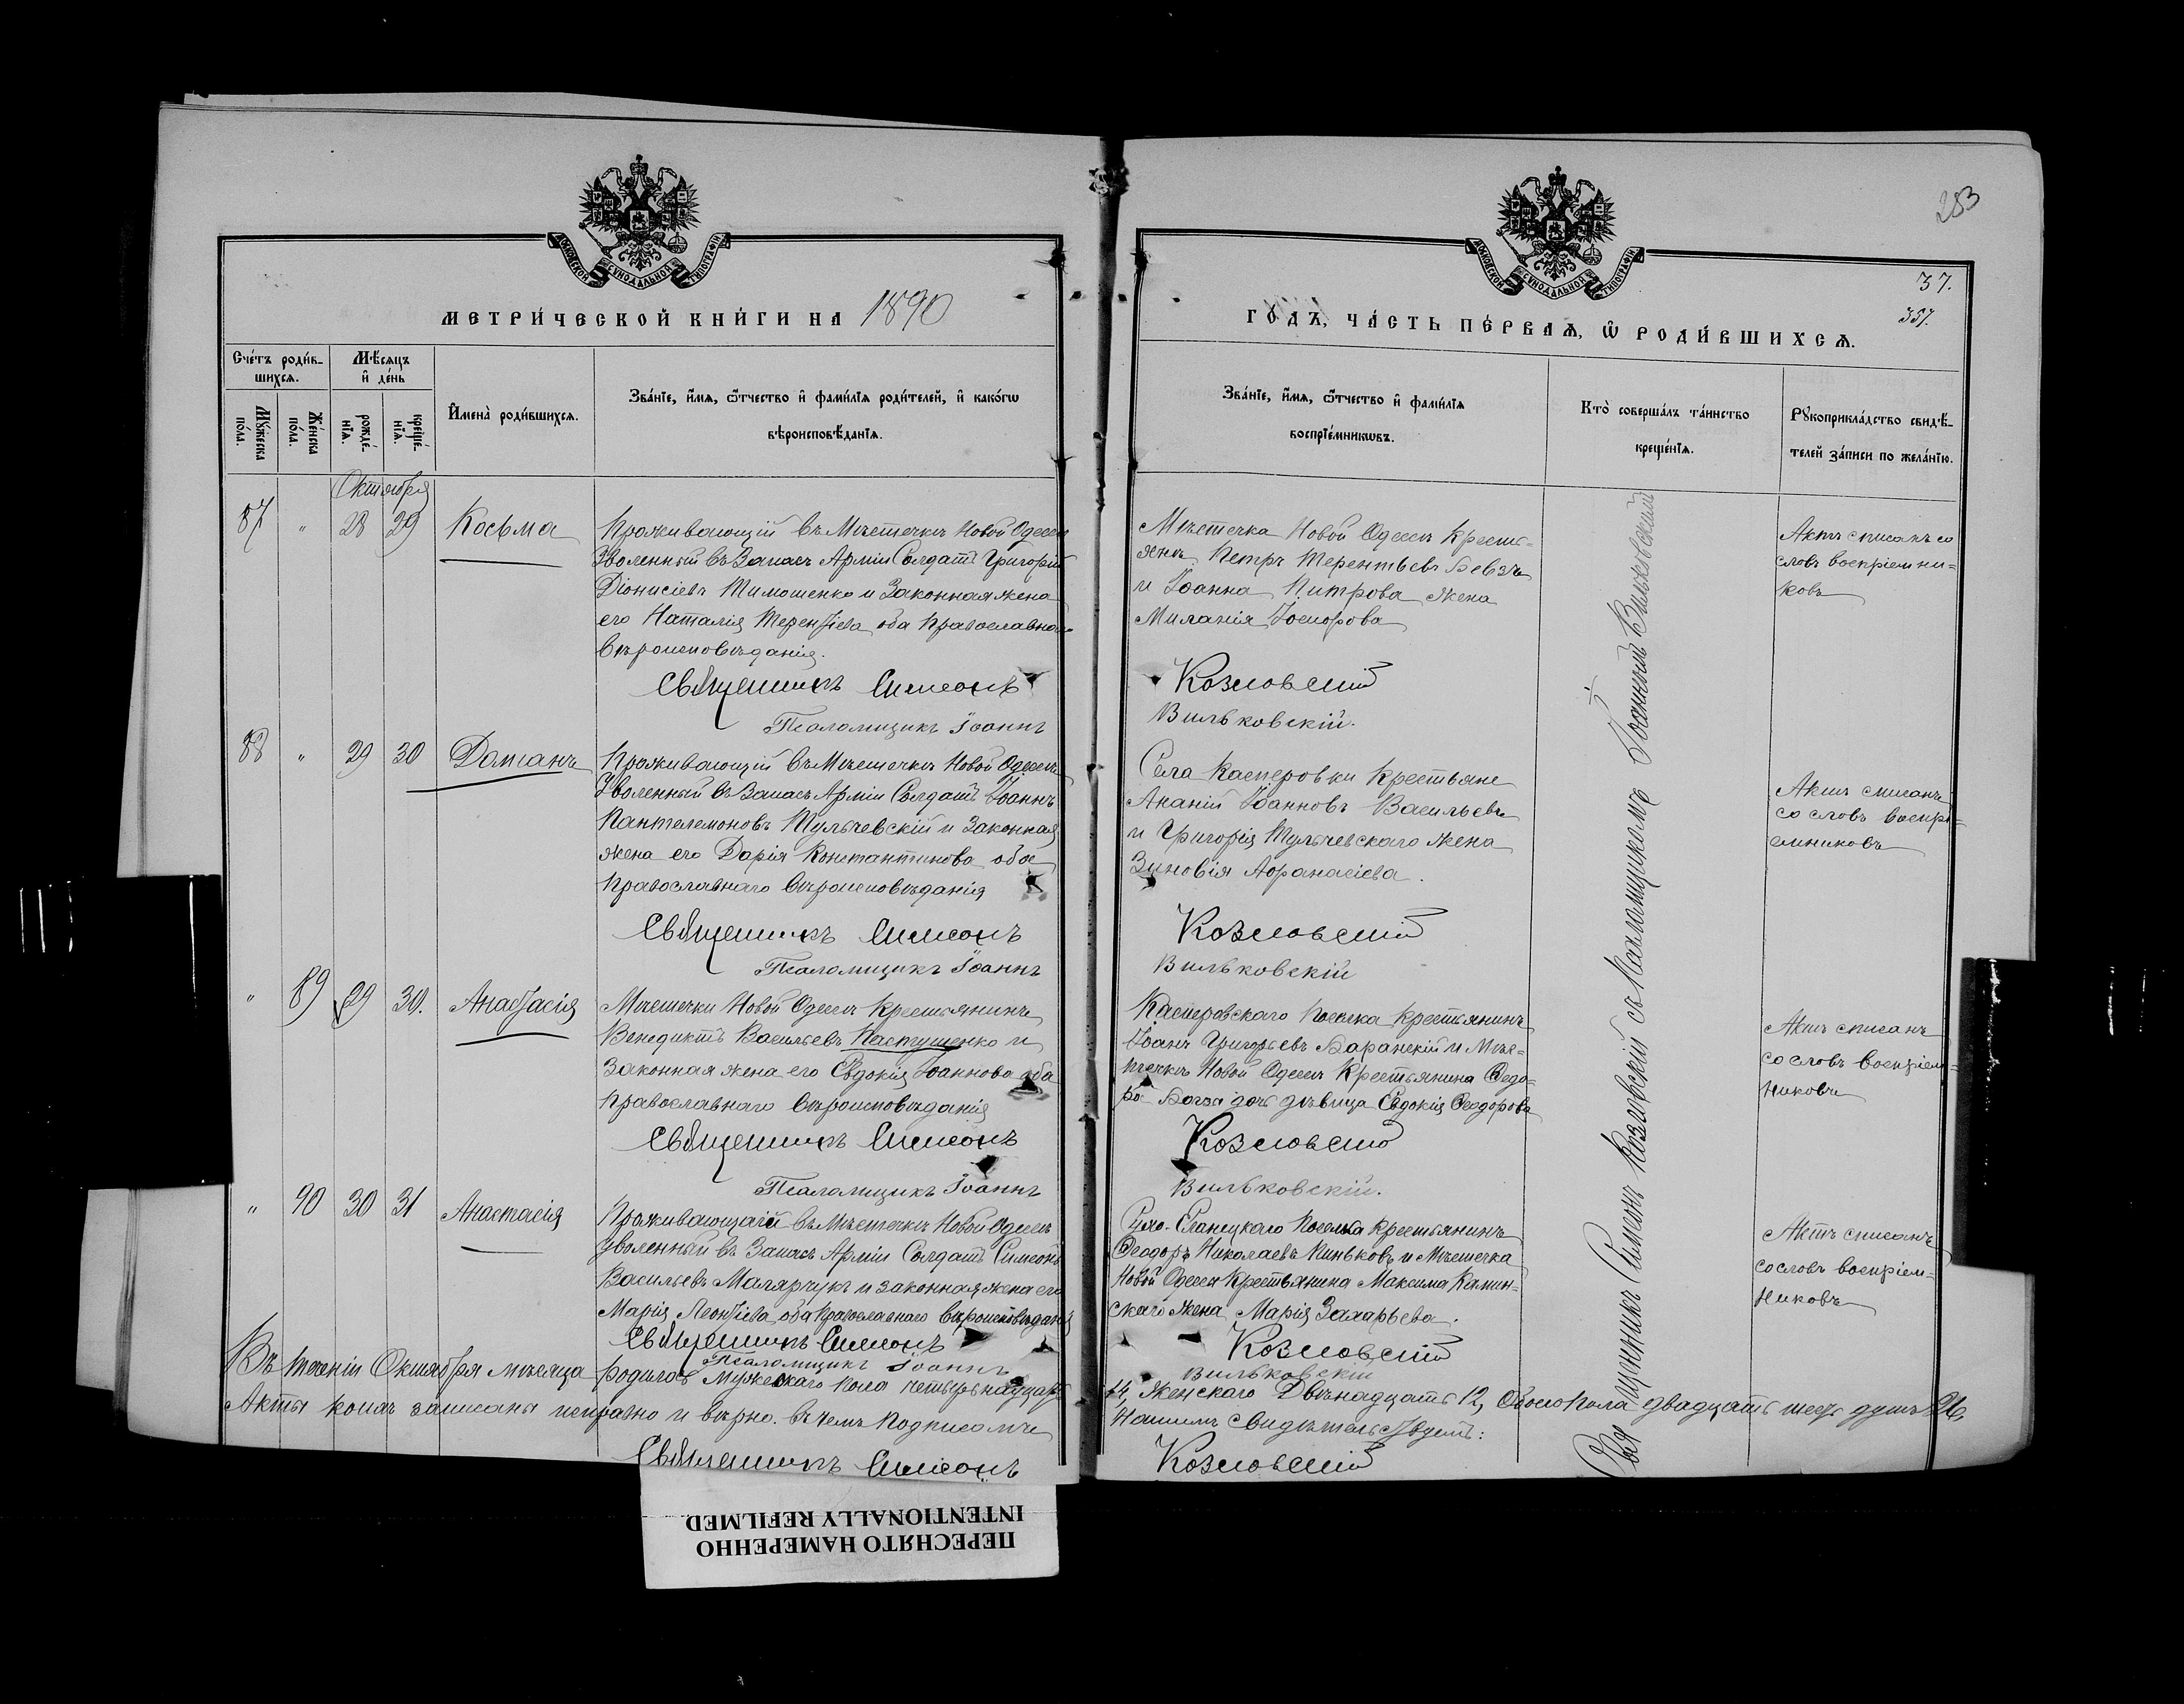 МОСКОВСКОЙ СѴНОДАЛЬНОЙ ТИПОГРАФІИ
МЕТРИЧЕСКОЙ КНИГИ НА 1890
Счетъ родив-
шихся.
Мѣсяцъ
и день
Мужеска
пола.
Женска
пола.
рожде-
нія.
креще-
нія.
Имена родившихся.
Званіе, имя, отчество и фамилія родителей, и какогω
вѣроисповѣданія.
Октября
87 " 28 29 Косьма
Проживающій въ Мѣстечкѣ Новой Одессѣ
Уволенный въ Запасъ Арміи Солдатъ Григорій
Діонисіевъ Тимошенко и Законная жена
его Наталія Терентіева оба Православнаго
вѣроисповѣданія.
Священникъ Симеонъ
Псаломщикъ Іоаннъ
88 " 29 30 Даміанъ
Проживающій въ Мѣстечкѣ Новой Одессѣ
Уволенный въ Запасъ Арміи Солдатъ Іоаннъ
Пантелемоновъ Тульчевскій и Законная
жена его Дарія Константинова оба
Православнаго Вѣроисповѣданія
Священникъ Симеонъ
Псаломщикъ Іоаннъ
" 89 29 30. Анастасія
Мѣстечки Новой Одессы Крестьянинъ
Венедиктъ Васильевъ Пастушенко и
Законная жена его Евдокія Іоаннова оба
Православнаго Вѣроисповѣданія
Священникъ Симеонъ
Псаломщикъ Іоаннъ
" 90 30 31 Анастасія
Проживающій въ Мѣстечкѣ Новой Одессѣ
Уволенный въ Запасъ Арміи Солдатъ Симеонъ
Васильевъ Малярчукъ и законная жена его
Марія Леонтіева оба Православнаго Вѣроисповѣданія
Священникъ Симеонъ
Псаломщикъ Іоаннъ
Въ теченіи Октября мѣсяца родилось Мужескаго пола четырнадцать
Акты коихъ записаны исправно и вѣрно. въ чемъ подписомъ
Священникъ Симеонъ
ПЕРЕСНЯТО НАМЕРЕННО
INTENTIONALLY REFILMED
253
МОСКОВСКОЙ СѴНОДАЛЬНОЙ ТИПОГРАФІИ
37.
357.
ГОДЪ, ЧАСТЬ ПЕРВАЯ, Ѿ РОДИВШИХСЯ.
Званіе, имя, отчество и фамилія
воспріемникωвъ.
Кто совершалъ таинство
крещенія.
Рукоприкладство свидѣ-
телей записи по желанію.
Мѣстечка Новой Одессы Кресть-
янинъ Петръ Терентьевъ Бевзъ
и Іоанна Питрова жена
Миланія Іосифова
Козловскій
Вильковскій.
Села Касперовки Крестьяне
Ананій Іоанновъ Васильевъ
и Григорія Тульчевскаго жена
Зиновія Афанасіева.
Козловскій
Вильковскій
Касперовскаго Поселка Крестьянинъ
Іоанъ Григорьевъ Баранскій и Мѣс-
течкѣ Новой Одессы Крестьянина Федо-
ра дочь дѣвица Евдокія Феодорова
Козловскій
Вильковскій.
Еланецкаго Поселка Крестьянинъ
Феодоръ Николаевъ Киньковъ и Мѣстечка
Новой Одессы Крестьянина Максима Камин-
скаго жена Марія Захарьева.
Козловскій
Вильковскій
14, Женскаго Двѣнадцать 12, Обоего Пола двадцать шесть душъ 26,
Нашимъ Свидѣтельствуемъ:
Козловскій
Священникъ Симеонъ Козловскій съ Псаломщикомъ Іоанномъ Вильковскимъ
Актъ списанъ со
словъ воспріемни-
ковъ
Актъ списанъ
со словъ воспрі-
емниковъ
Актъ списанъ
со словъ воспріем-
никовъ
Актъ списанъ
со словъ воспріем-
никовъ